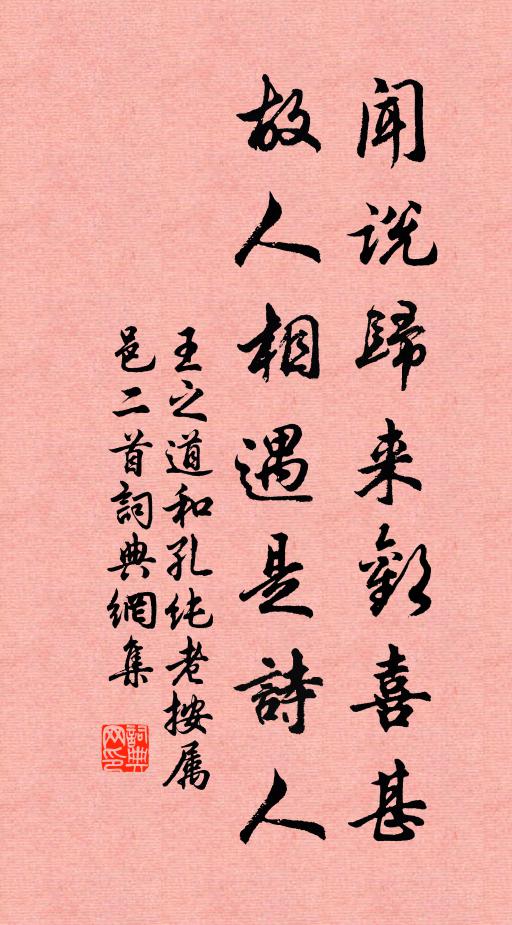 闻说歸来歡喜甚
故人相遇是詩人
王之道和孔纯老按属
邑二首詞典網集
詞典
网印